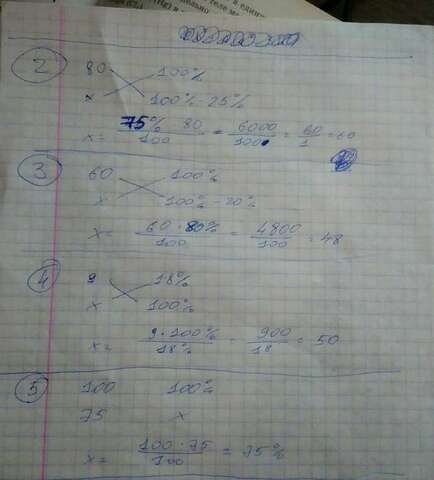 2 80 100%
x 100% - 25%
x = 75% 80 / 100 = 6000 / 100 = 60 / 1 = 60
3 60 100%
x 100% - 20%
x = 60 · 80% / 100 = 4800 / 100 = 48
4 9 18%
x 100%
x = 9 · 100% / 18% = 900 / 18 = 50
5 100 100%
75 x
x = 100 · 75 / 100 = 75%